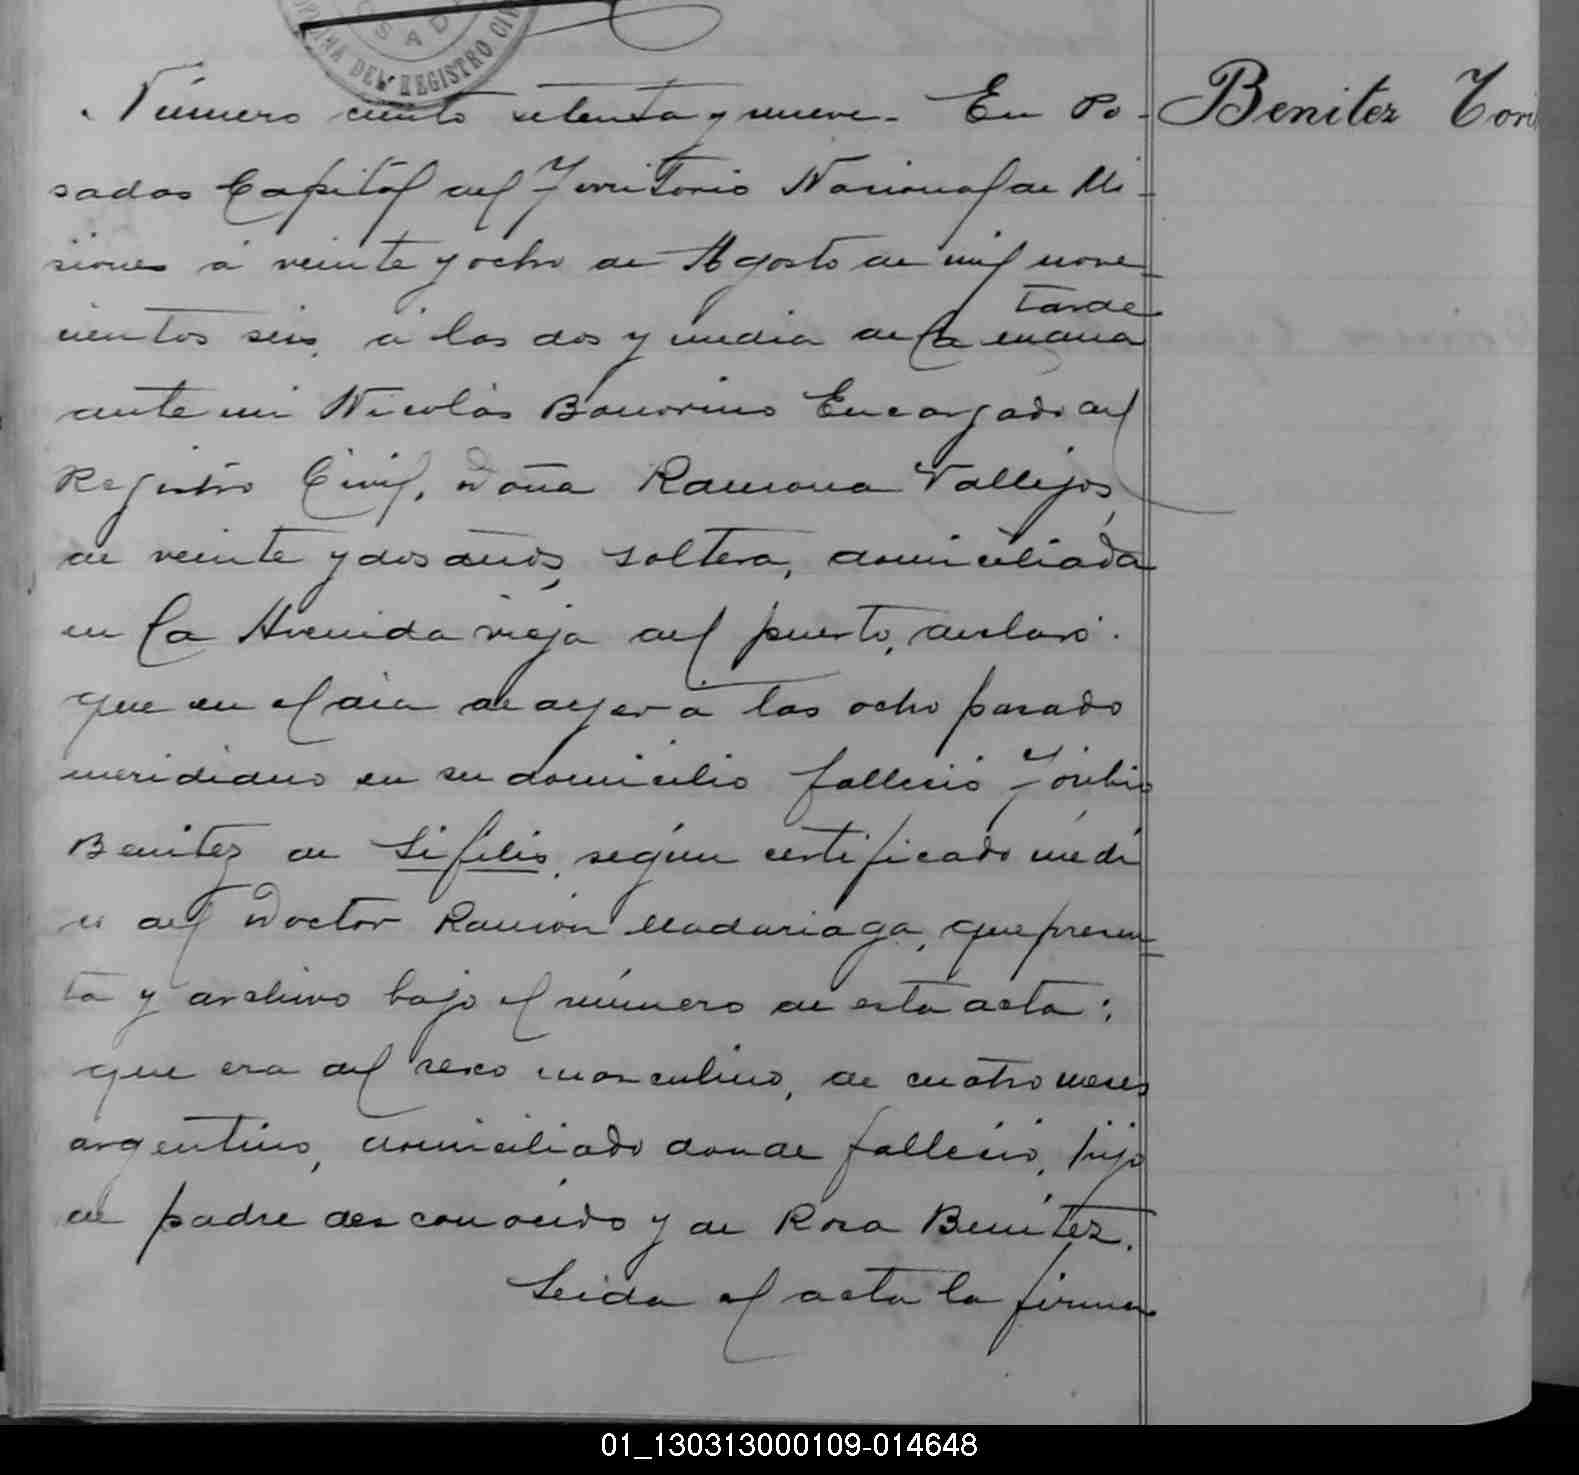 OFICINA DEL REGISTRO CIVIL
POSADAS
Número ciento setenta y nueve. En Po-
Benitez Tori
sadas Capital del Territorio Nacional de Mi-
siones á veinte y ocho de Agosto de mil nove-
tarde
cientos seis, á las dos y media de la mana
ante mi Nicolás Bonorino Encargado del
Registro Civil, Doña Ramona Vallejos,
de veinte y dos años, soltera, domiciliada
en la Avenida vieja del puerto, declaró:
que en el dia de ayer á las ocho pasado
meridiano en su domicilio falleció Toribio
Benitez de Sifilis, según certificado médi
co del Doctor Ramón Madariaga, que presen-
ta y archivo bajo el número de esta acta:
que era del sexo masculino, de cuatro meses
argentino, domiciliado donde falleció, hijo
de padre desconocido y de Rosa Benítez.
Leida el acta la firman
01_130313000109-014648